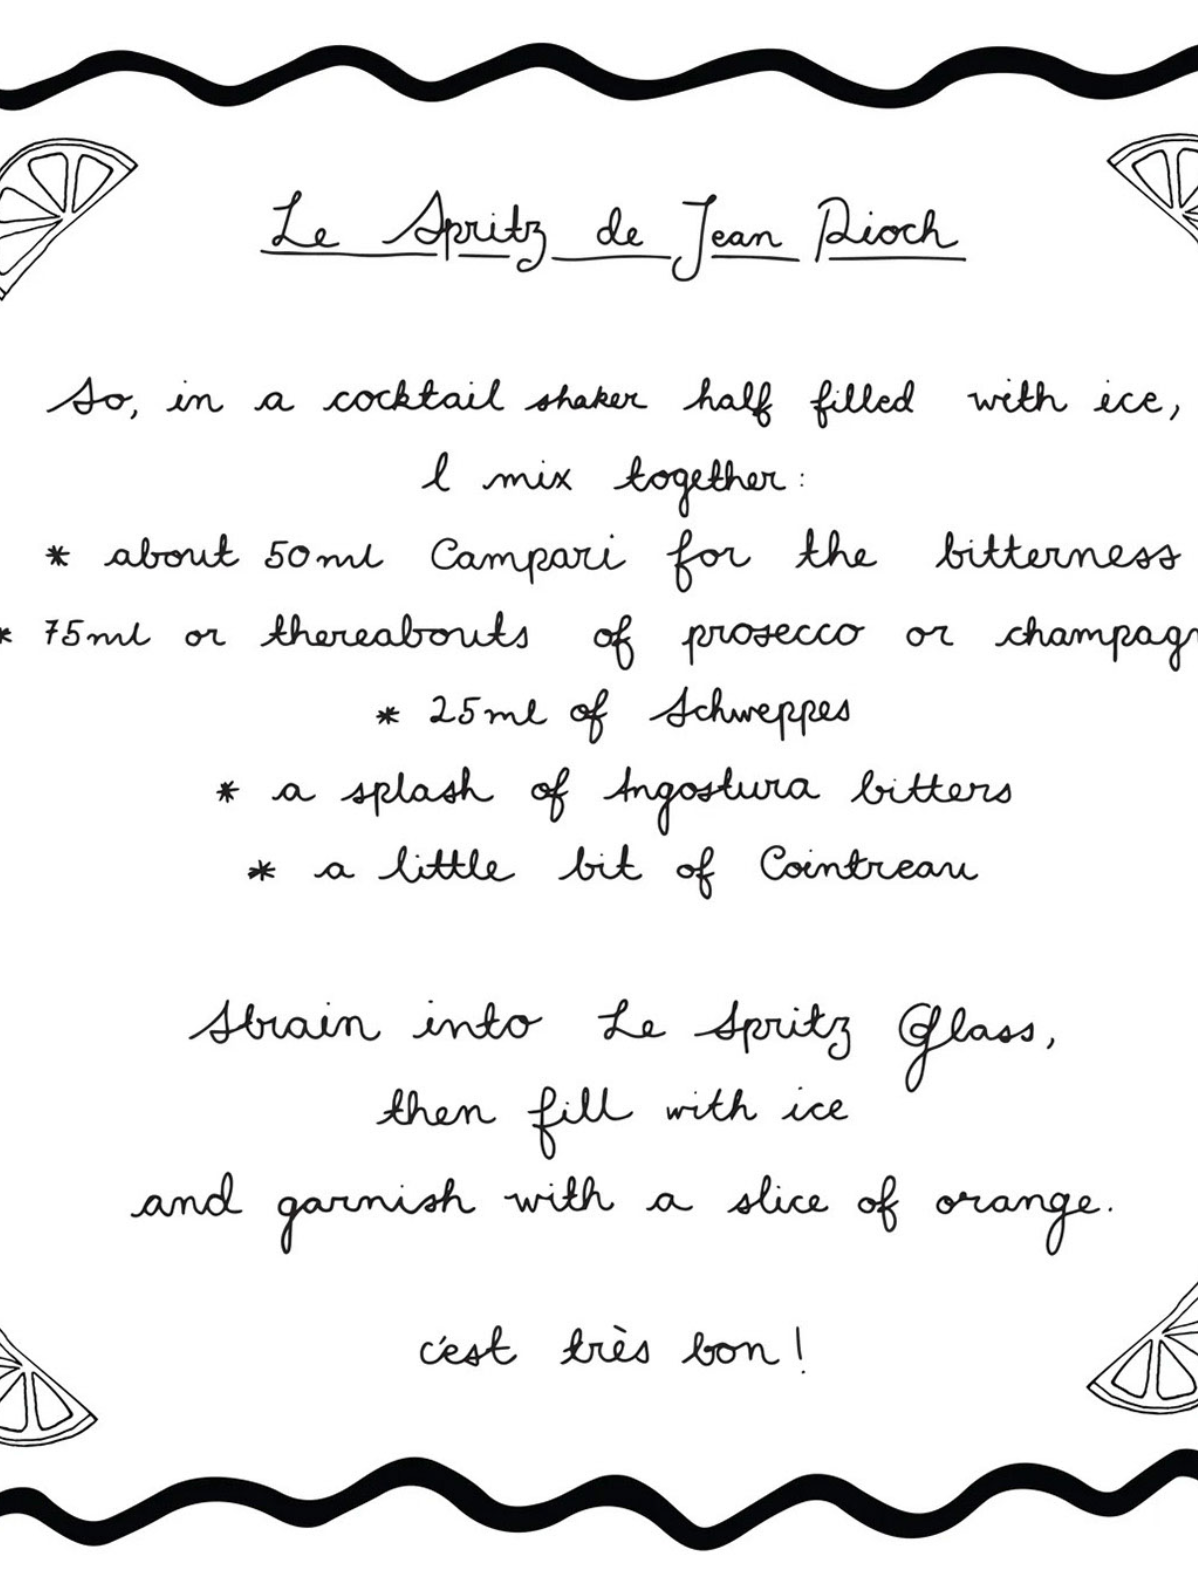 Le Spritz de Jean Pioch
So, in a cocktail shaker half filled with ice,
I mix together:
* about 50ml Campari for the bitterness
* 75ml or thereabouts of prosecco or champagn
* 25ml of Schweppes
* a splash of Angostura bitters
* a little bit of Cointreau
Strain into Le Spritz Glass,
then fill with ice
and garnish with a slice of orange.
c'est très bon!